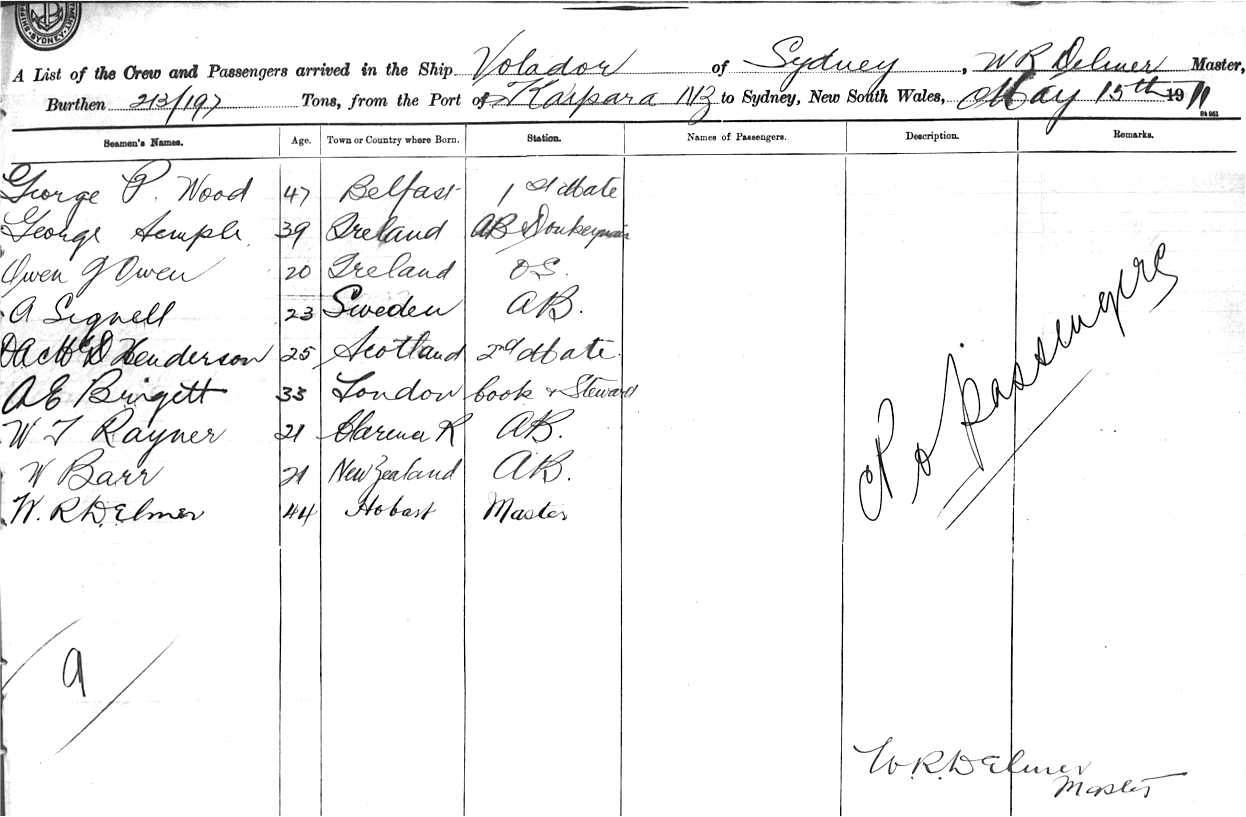 SYDNEY
A List of the Crew and Passengers arrived in the Ship Volador of Sydney, W R Delmer Master,
Burthen 213/197 Tons, from the Port of Kaipara NZ to Sydney, New South Wales, May 15th 1911
Seamen's Names. Age. Town or Country where Born. Station. Names of Passengers. Description. Remarks.
George P. Wood 47 Belfast 1st Mate
George Semple 39 Ireland AB & Donkeyman
Owen J Owen 20 Ireland O.S.
A Signell 23 Sweden AB.
Henderson 25 Scotland 2nd Mate.
A E Bringett 33 London Cook & Steward
W T Rayner 21 Clarence R AB.
W Barr 21 New Zealand AB.
W. R. D. Elmer 44 Hobart Master
No passengers
9
W. R. D Elmer
Master